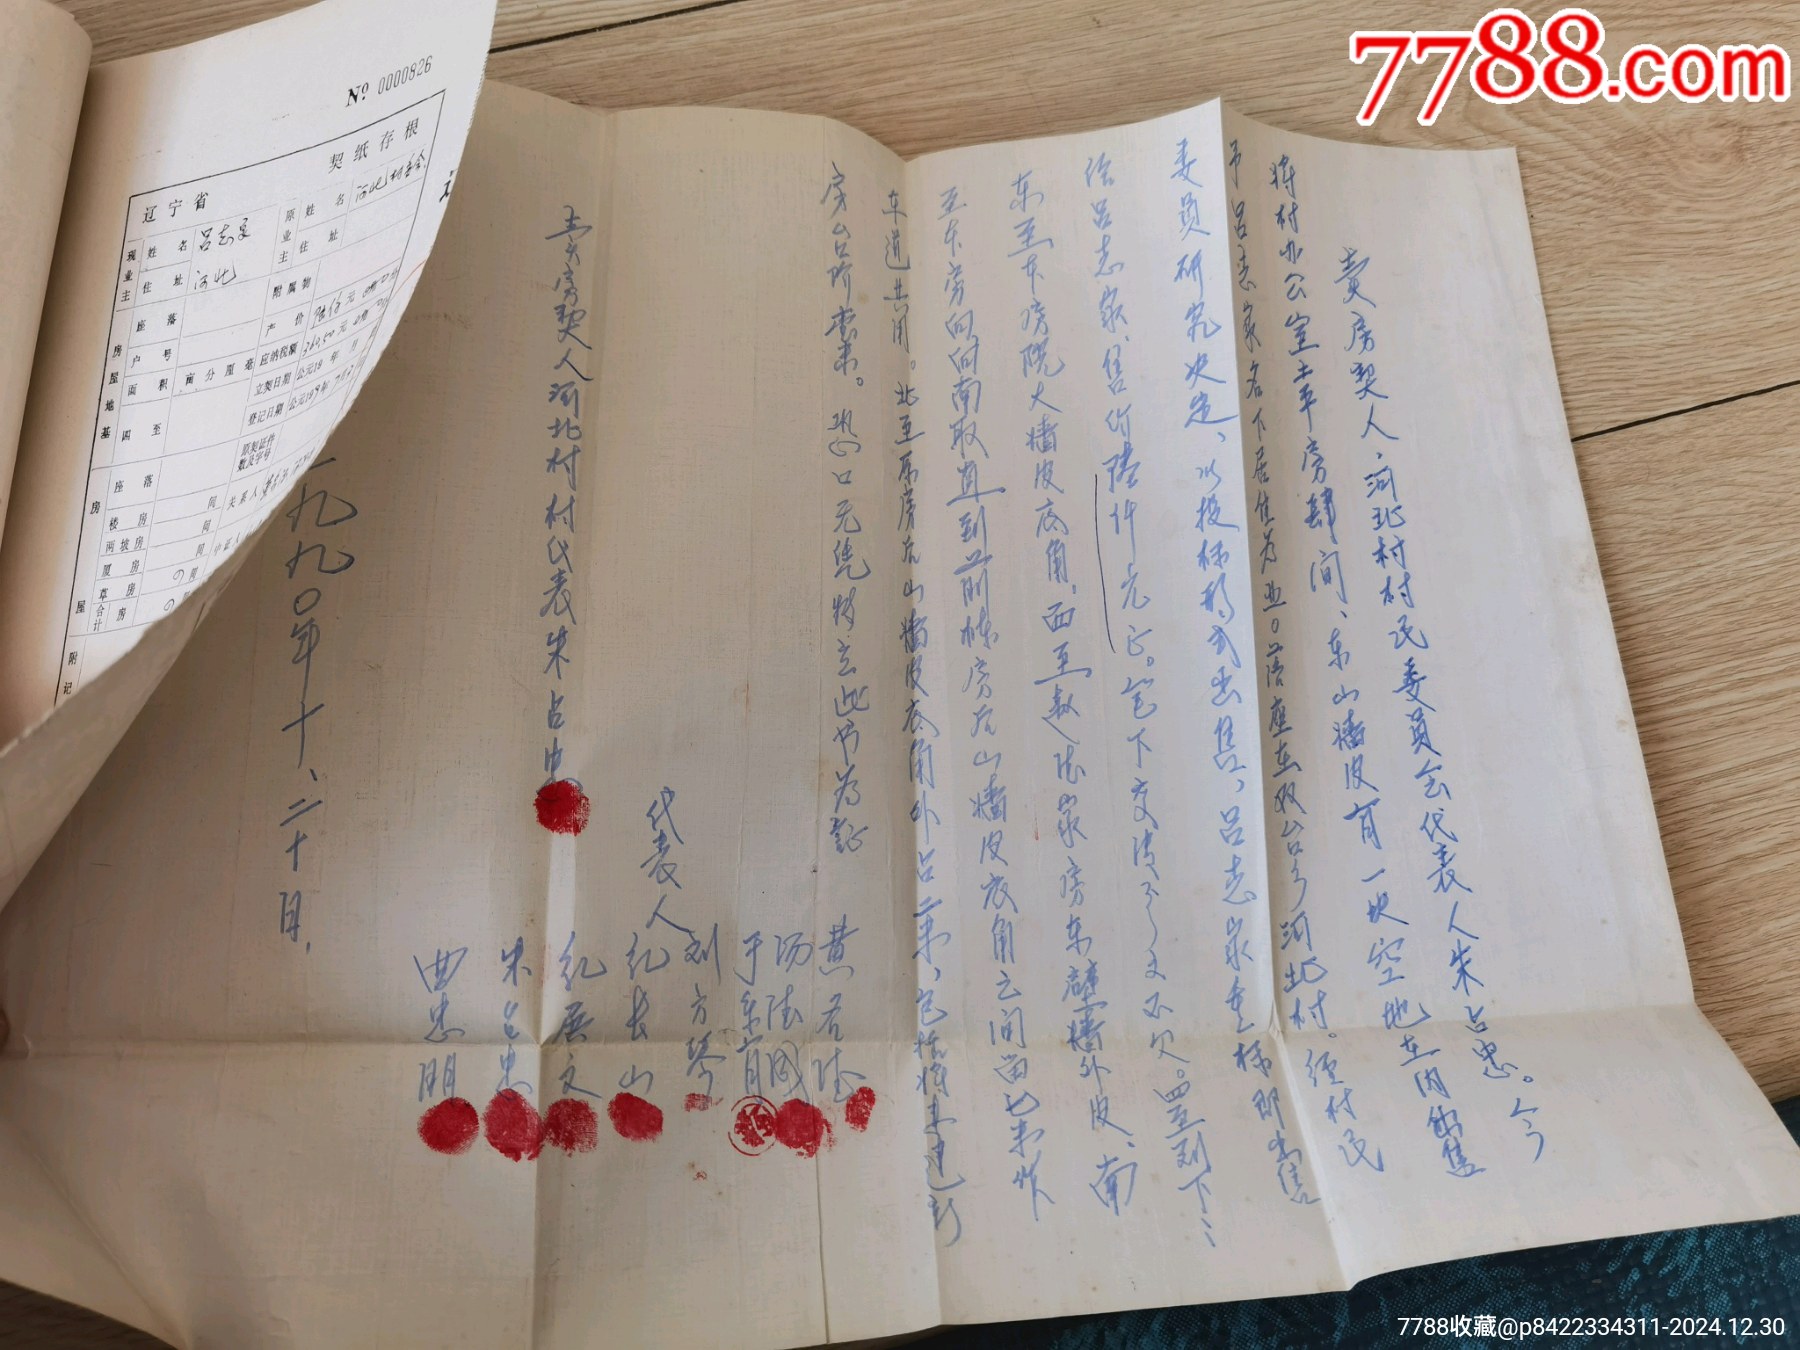 7788.com
卖房契人、河北村村民委员会代表人朱占忠。今
将村办公室土平房肆间、东山墙皮有一块空地在内出售
予吕志家名下居住为业。坐落座在双台乡河北村。经村民
委员研究决定、以投标形式出售，吕志家委标即出售
给吕志家、售价陆仟元正。笔下交清分文不欠。四至列下：
东至东房院大墙皮底角，西至赵法家房东壁墙外皮、南
至东房向南取直到前栋房后山墙皮底角之间留七米作
车道共用。北至原房后山墙皮底角外占二米，包括将来建
房台阶
恐口无凭特立此书为证
卖房契人河北村村代表朱占忠
代表人
黄
汤法国
于东
刘方琴
纪长山
纪展文
朱占忠
曲忠明
一九九〇年十、二十日.
Nº 0000826
契纸存根
辽宁省
现业主
姓名
吕志
住址
河北
原业主
姓名
河北村委会
住址
房屋地基
座落
户号
面积
亩分厘毫
四至
附属物
产价
应纳税额
360.50元
立契日期
公元19 年 月
登记日期
原契证件数及字号
房屋
座落
楼房 间
两坡房 间
厦房 间
草房
合计
关系人
附记
7788收藏@p8422334311-2024.12.30